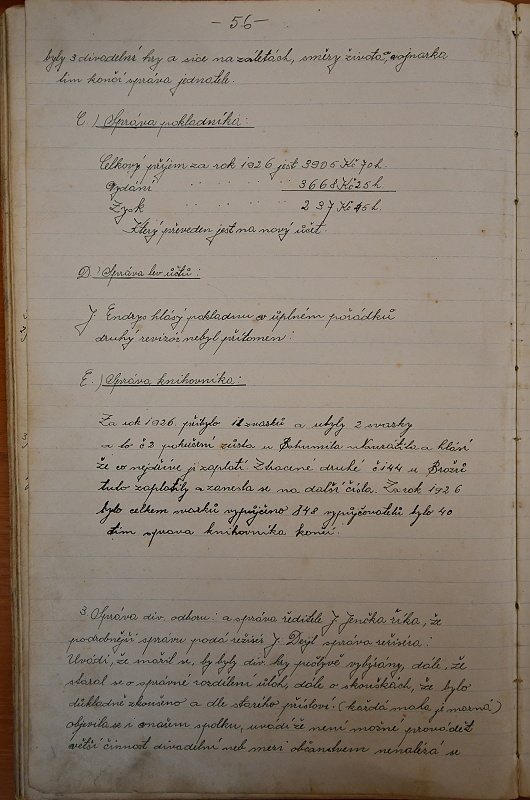 -56-
byly 3 divadelní hry a sice na záletách, směry života, vojnarka
tím končí správa jednatele.
C.) Správa pokladníka:
Celkový příjem za rok 1926 jest 3905 Kč 70 h.
Vydání . . . . . . 3668 Kč 25 h.
Zysk . . . . 237 Kč 45 h.
Který převeden jest na nový účet.
D.) Správa rev. účtů:
J Endrys hlásý pokladnu v úplném pořádků
druhý revizor nebyl přítomen.
E.) Správa knihovníka:
Za rok 1926. přibylo 11 svasků a ubyly 2 svasky
a to č 2 pokučení zůsta u Bohumila Navrátila a hlásí
že co nejdříve ji zaplatí. Ztracené druhé č 144 u Brožů
tuto zaplatily a zanesla se na další čísla. Za rok 1926
bylo celkem svasků vypůjčeno 848 vypůjčovatelů bylo 40
tím sprava knihovníka končí.
3. Správa div. odboru: a správa ředitele J Jenčka říka, že
podrobnější správu podá režisér J Dejl správa režiséra:
Uvádí, že mařil se, by byly div. hry pečlyvě vybýrány, dále, že
staral se o správné rozdílení úloh, dále o skouškách, že bylo
důkladně zkoušeno a dle starího přísloví. (každá mala je marná)
objevila se i v našem spolku, uvádí že není možné provádět
větší činnost divadelní neb mezi občanstvem nenalézá se